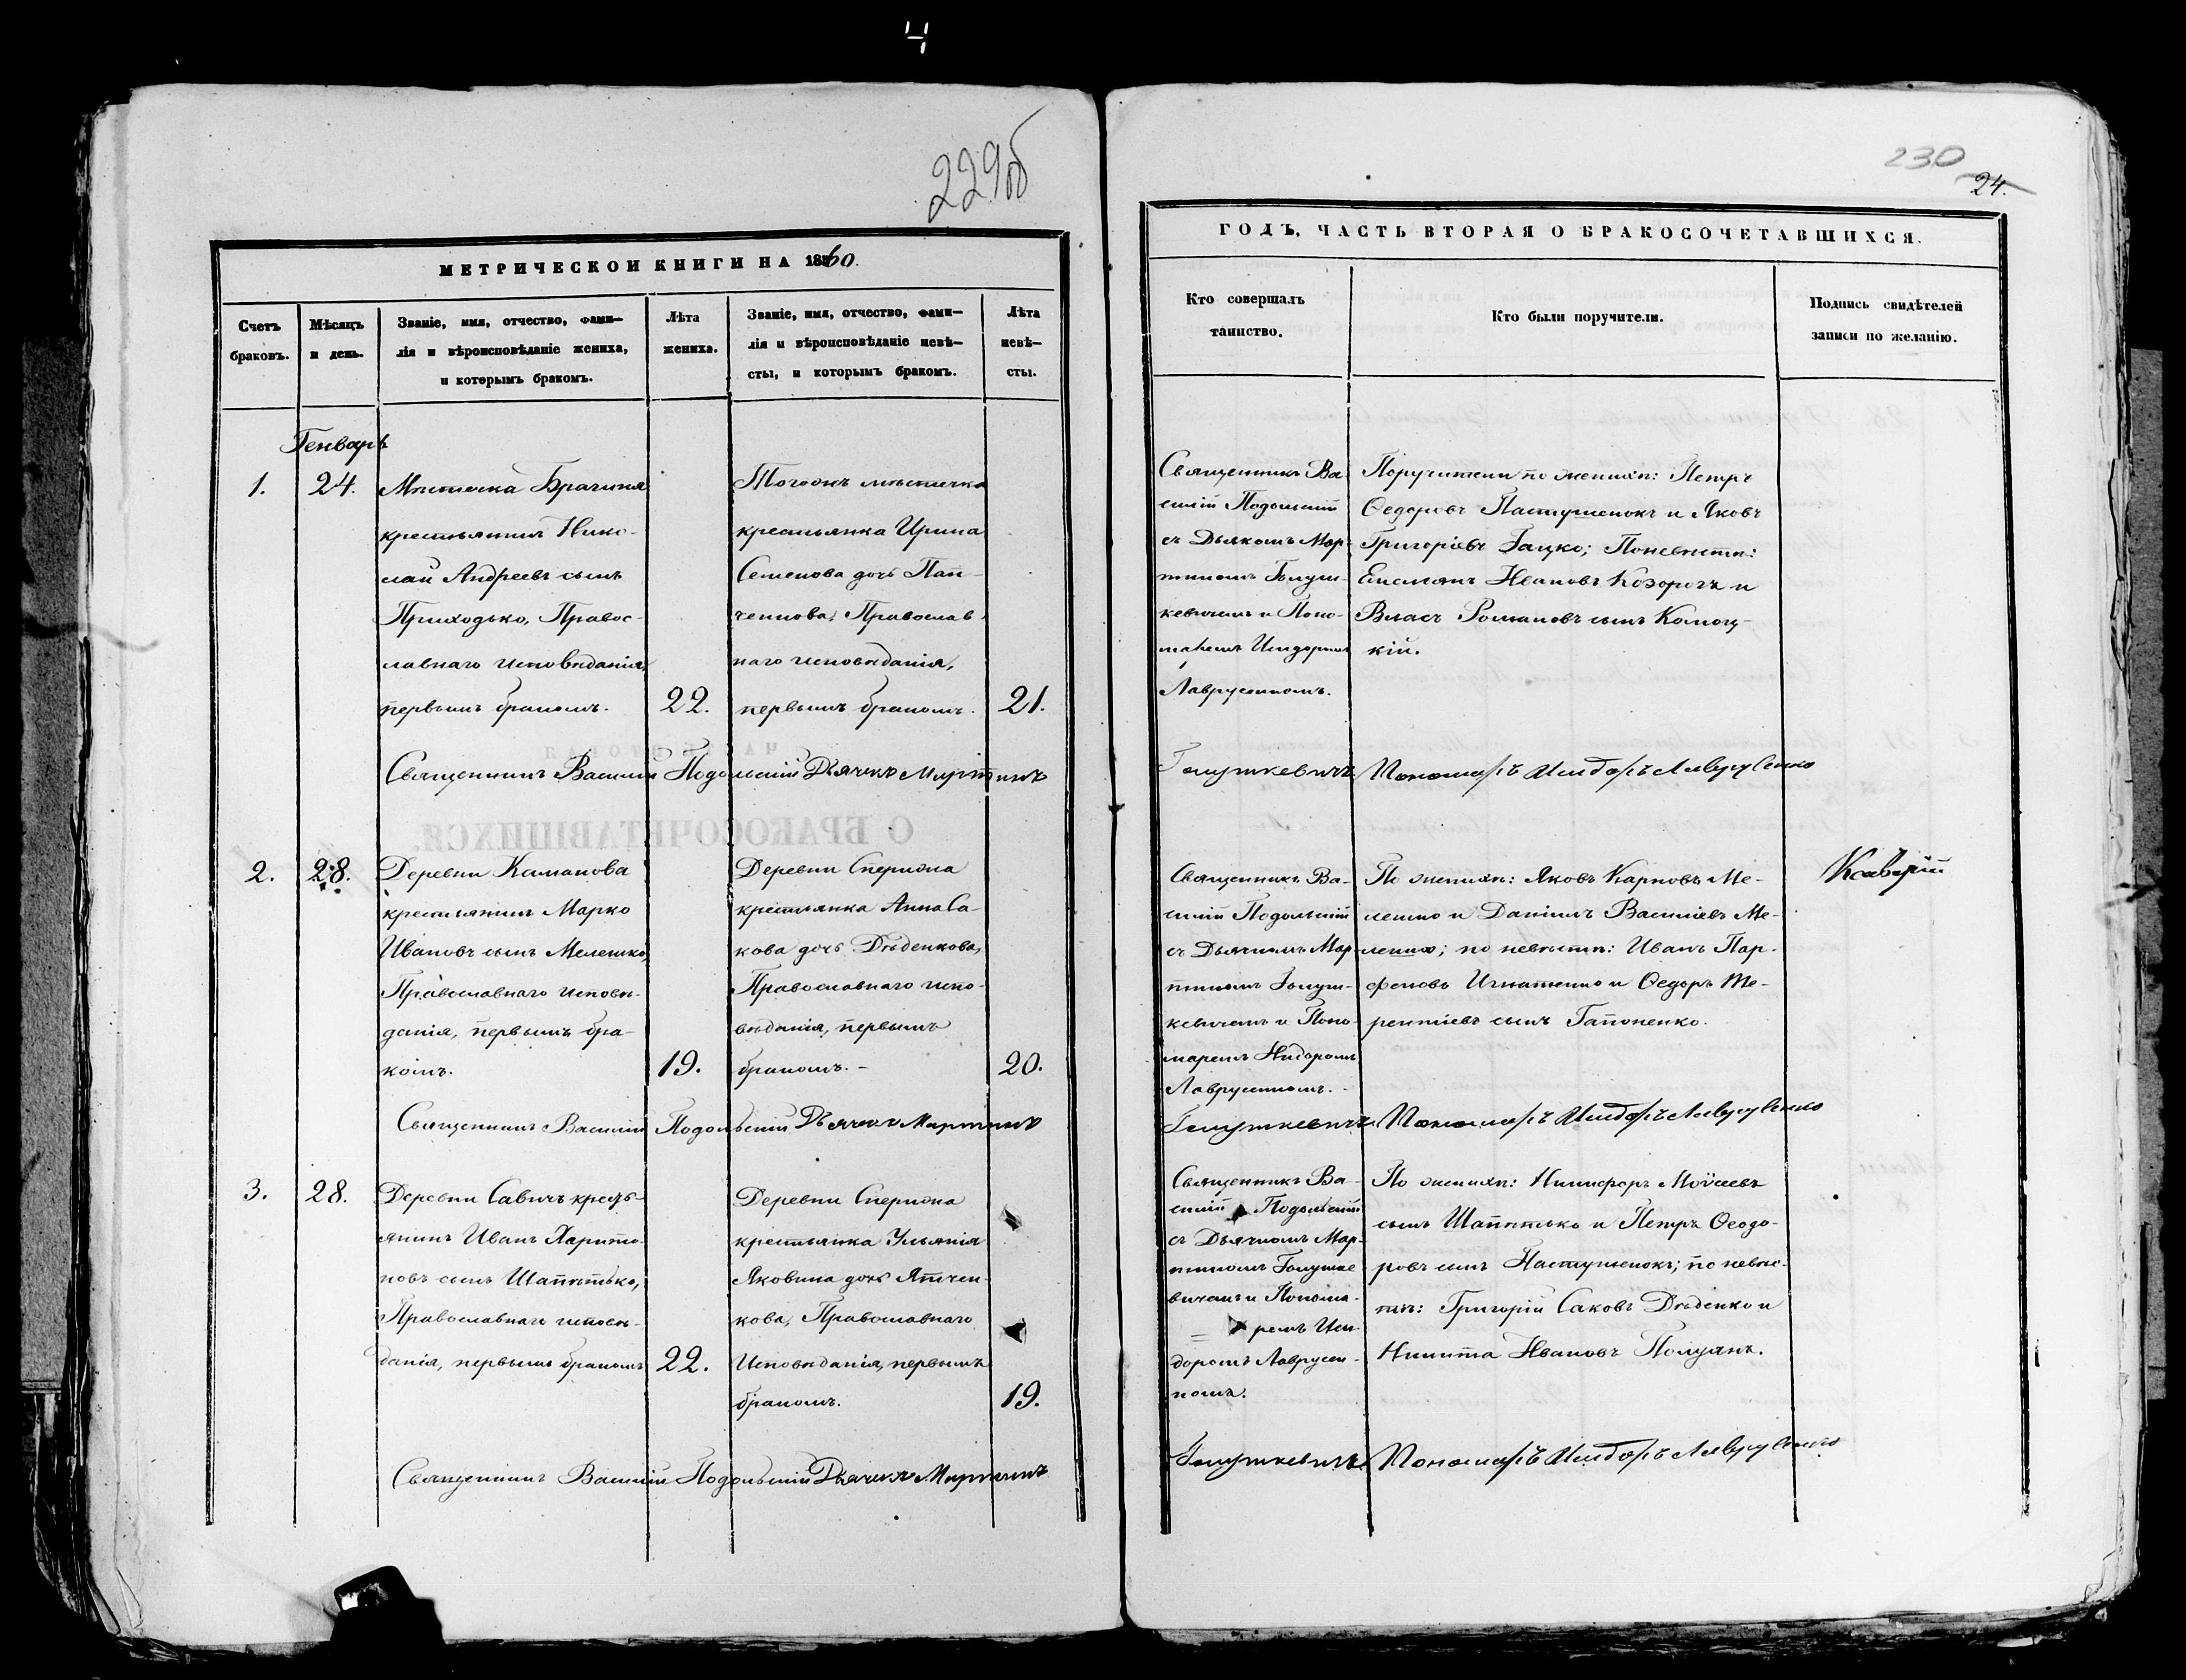 229об
МЕТРИЧЕСКОЙ КНИГИ НА 1860.
Счетъ
браковъ.
Мѣсяцъ
и день.
Званіе, имя, отчество, фами—
лія и вѣроисповѣданіе жениха,
и которымъ бракомъ.
Лѣта
жениха.
Званіе, имя, отчество, фами—
лія и вѣроисповѣданіе невѣ—
сты, и которымъ бракомъ.
Лѣта
невѣ—
сты.
Генварь
1.
24.
Мѣстечка Брагина
крестьянинъ Нико-
лай Андреевъ сынъ
Приходько, Правос-
лавнаго исповѣданія,
первымъ бракомъ.
22.
Тогожъ мѣстечка
крестьянка Ирина
Семенова дочь Пан-
ченкова, Православ-
наго исповѣданія,
первымъ бракомъ.
21.
Священникъ Василій Подольскій Дьячекъ Мартинъ
2.
28.
Деревни Каманова
крестьянинъ Марко
Ивановъ сынъ Мелешко,
Православнаго исповѣ-
данія, первымъ бра-
комъ.
19.
Деревни Спернжа
крестьянка Анна Са-
кова дочь Дѣденкова,
Православнаго испо-
вѣданія, первымъ
бракомъ. -
20.
Священникъ Василій Подольскій Дьячекъ Мартинъ
3.
28.
Деревни Савичъ кресть-
янинъ Иванъ Харито-
новъ сынъ Шапѣтько,
Православнаго исповѣ-
данія, первымъ бракомъ
22.
Деревни
крестьянка Ульянія
Яковина дочь Ятчен-
кова, Православнаго
Исповѣданія, первымъ
бракомъ.
19.
Священникъ Василій Подольскій Дьячекъ Мартинъ
230
24.
ГОДЪ, ЧАСТЬ ВТОРАЯ О БРАКОСОЧЕТАВШИХСЯ.
Кто совершалъ
таинство.
Кто были поручители.
Подпись свидѣтелей
записи по желанію.
Священникъ Ва-
силій Подольскій
съ Дьякомъ Мар-
тиномъ Голуш-
кевичемъ и Поно-
маремъ Исидоромъ
Лаврусенкомъ.
Поручители по женихѣ: Петръ
Ѳедоровъ Пастушенокъ и Яковъ
Григоріевъ Гацко; По невѣстѣ:
Емельянъ Ивановъ Козорогъ и
Власъ Романовъ сынъ Комоц-
кій.
Голушкевичъ Пономарь Исидоръ Лаврусенко
Священникъ Ва-
силій Подольскій
съ Дьячкомъ Мар-
тиномъ Голуш-
кевичемъ и Поно-
маремъ Исидоромъ
Лаврусенкомъ. -
По женихѣ: Яковъ Карповъ Ме-
лешко и Даніилъ Василіевъ Ме-
лешко; по невѣстѣ: Иванъ Пар-
феновъ Игнатенко и Ѳедоръ Те-
рентіевъ сынъ Гапоненко.
Голушкевичъ Пономарь Исидоръ Лаврусенко
Священникъ Ва-
силій Подольскій
съ Дьячкомъ Мар-
тиномъ Голушке
вичемъ и Понома-
ремъ Иси-
доромъ Лаврусен-
комъ.
По женихѣ: Никифоръ Моѵсеевъ
сынъ Шапѣтько и Петръ Ѳеодо-
ровъ сынъ Пастушенокъ; по невѣс-
тѣ: Григорій Саковъ Дѣденко и
Никита Ивановъ Полуянъ.
Голушкевичъ Пономарь Исидоръ Лаврусенко